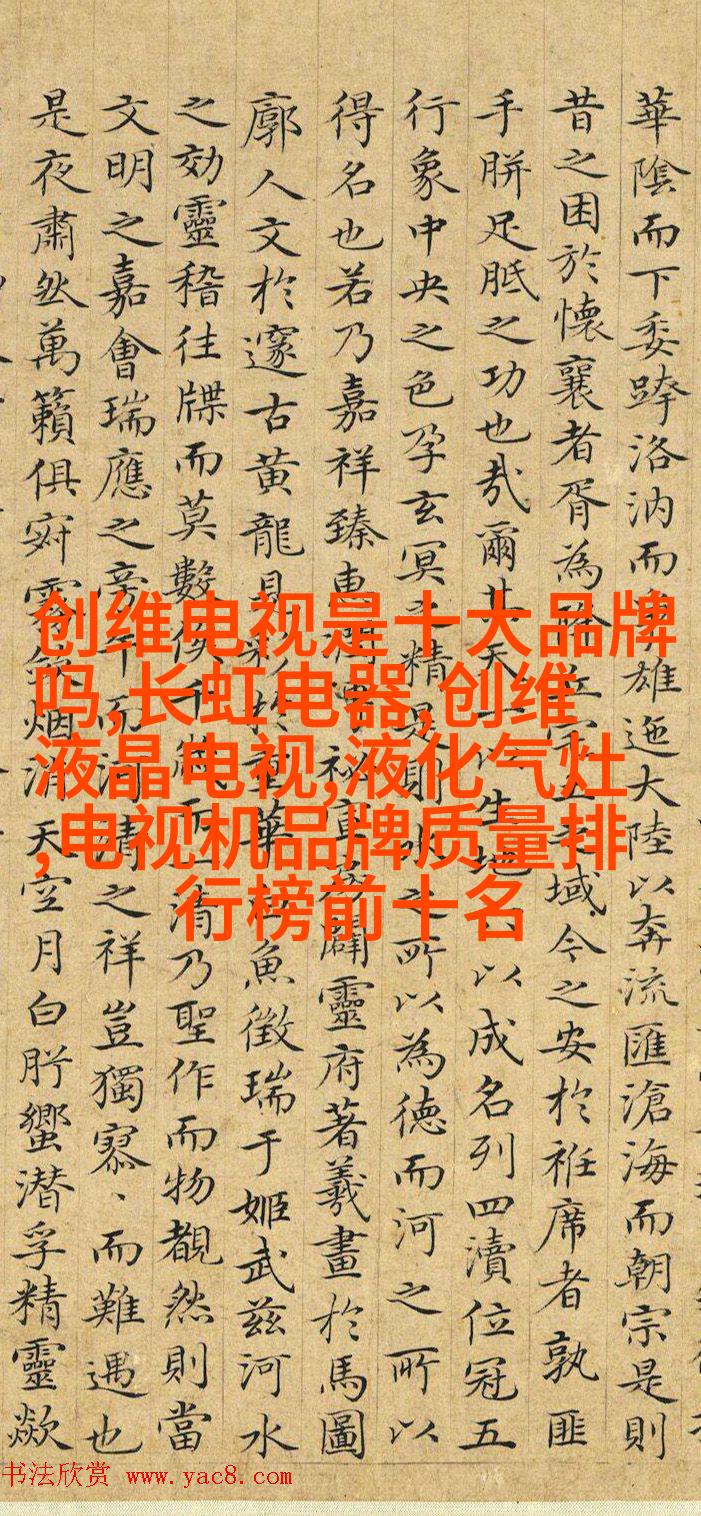 華陰而下委跨洛汭而雄迤大陸以奔流匯滄海而朝宗是則
昔之困於懷襄者胥為域今之安於袵席者孰匪
手胼足胝之功也哉爾其天以生地以成名列四瀆位冠五
行象中央之色孕玄冥之精是則之所以為德而河之所以
得名也若乃嘉祥臻惠闢靈府著羲畫於馬圖
廓人文於邃古黃龍見彩於重華魚徵瑞于姬武茲河水
之効靈稽往牒而莫數俟千歲而一清乃聖作而物覩然則當
文明之嘉會瑞應之旁午而河清之祥豈獨寥、而難遇也
是夜肅然萬籟俱寂雲斂烟消天空月白肸蠁潜孚精靈歘
创维电视是十大品牌
吗,长虹电器,创维
液晶电视,液化气灶
,电视机品牌质量排
行榜前十名
书法欣赏 www.yac8.com